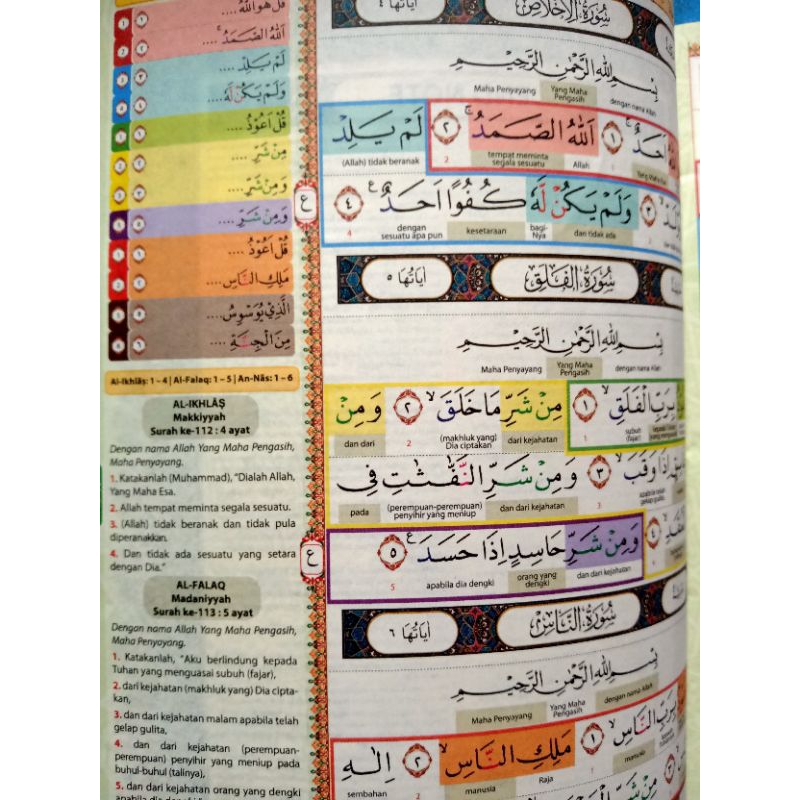 قُلْ هُوَ اللّٰهُ ....
اَللّٰهُ الصَّمَدُۚ ....
لَمْ يَلِدْ ....
وَلَمْ يَكُنْ لَّهٗ ....
قُلْ اَعُوْذُ ....
مِنْ شَرِّ ....
وَمِنْ شَرِّ ....
وَمِنْ شَرِّ ....
قُلْ اَعُوْذُ ....
مَلِكِ النَّاسِ ....
الَّذِيْ يُوَسْوِسُ ....
مِنَ الْجِنَّةِ ....
Al-Ikhlāṣ: 1 – 4 | Al-Falaq: 1 – 5 | An-Nās: 1 – 6
AL-IKHLĀṢ
Makkiyyah
Surah ke-112 : 4 ayat
Dengan nama Allah Yang Maha Pengasih,
Maha Penyayang.
1. Katakanlah (Muhammad), “Dialah Allah,
Yang Maha Esa.
2. Allah tempat meminta segala sesuatu.
3. (Allah) tidak beranak dan tidak pula
diperanakkan.
4. Dan tidak ada sesuatu yang setara
dengan Dia.”
AL-FALAQ
Madaniyyah
Surah ke-113 : 5 ayat
Dengan nama Allah Yang Maha Pengasih,
Maha Penyayang.
1. Katakanlah, “Aku berlindung kepada
Tuhan yang menguasai subuh (fajar),
2. dari kejahatan (makhluk yang) Dia cipta-
kan,
3. dan dari kejahatan malam apabila telah
gelap gulita,
4. dan dari kejahatan (perempuan-
perempuan) penyihir yang meniup pada
buhul-buhul (talinya),
5. dan dari kejahatan orang yang dengki
apabila dia dengki
سُوْرَةُ الْاِخْلَاصِ اٰيَاتُهَا ٤
بِسْمِ اللّٰهِ الرَّحْمٰنِ الرَّحِيْمِ
dengan nama Allah Yang Maha Pengasih Maha Penyayang
اَحَدٌۚ ١ اَللّٰهُ الصَّمَدُۚ ٢ لَمْ يَلِدْ
Yang Maha Esa 1 Allah tempat meminta segala sesuatu 2 (Allah) tidak beranak
٣ وَلَمْ يَكُنْ لَّهٗ كُفُوًا اَحَدٌࣖ ٤
3 dan tidak ada bagi-Nya kesetaraan dengan sesuatu apa pun 4
ع
سُوْرَةُ الْفَلَقِ اٰيَاتُهَا ٥
بِسْمِ اللّٰهِ الرَّحْمٰنِ الرَّحِيْمِ
dengan nama Allah Yang Maha Pengasih Maha Penyayang
بِرَبِّ الْفَلَقِۙ ١ مِنْ شَرِّ مَا خَلَقَۙ ٢ وَمِنْ
subuh (fajar) 1 dari kejahatan (makhluk yang) Dia ciptakan 2 dan dari
اِذَا وَقَبَۙ ٣ وَمِنْ شَرِّ النَّفّٰثٰتِ فِى
apabila telah gelap gulita 3 dan dari kejahatan (perempuan-perempuan) penyihir yang meniup pada
٤ وَمِنْ شَرِّ حَاسِدٍ اِذَا حَسَدَࣖ ٥
4 dan dari kejahatan orang yang dengki apabila dia dengki 5
ع
سُوْرَةُ النَّاسِ اٰيَاتُهَا ٦
بِسْمِ اللّٰهِ الرَّحْمٰنِ الرَّحِيْمِ
dengan nama Allah Yang Maha Pengasih Maha Penyayang
بِرَبِّ النَّاسِۙ ١ مَلِكِ النَّاسِۙ ٢ اِلٰهِ
manusia 1 Raja manusia 2 sembahan